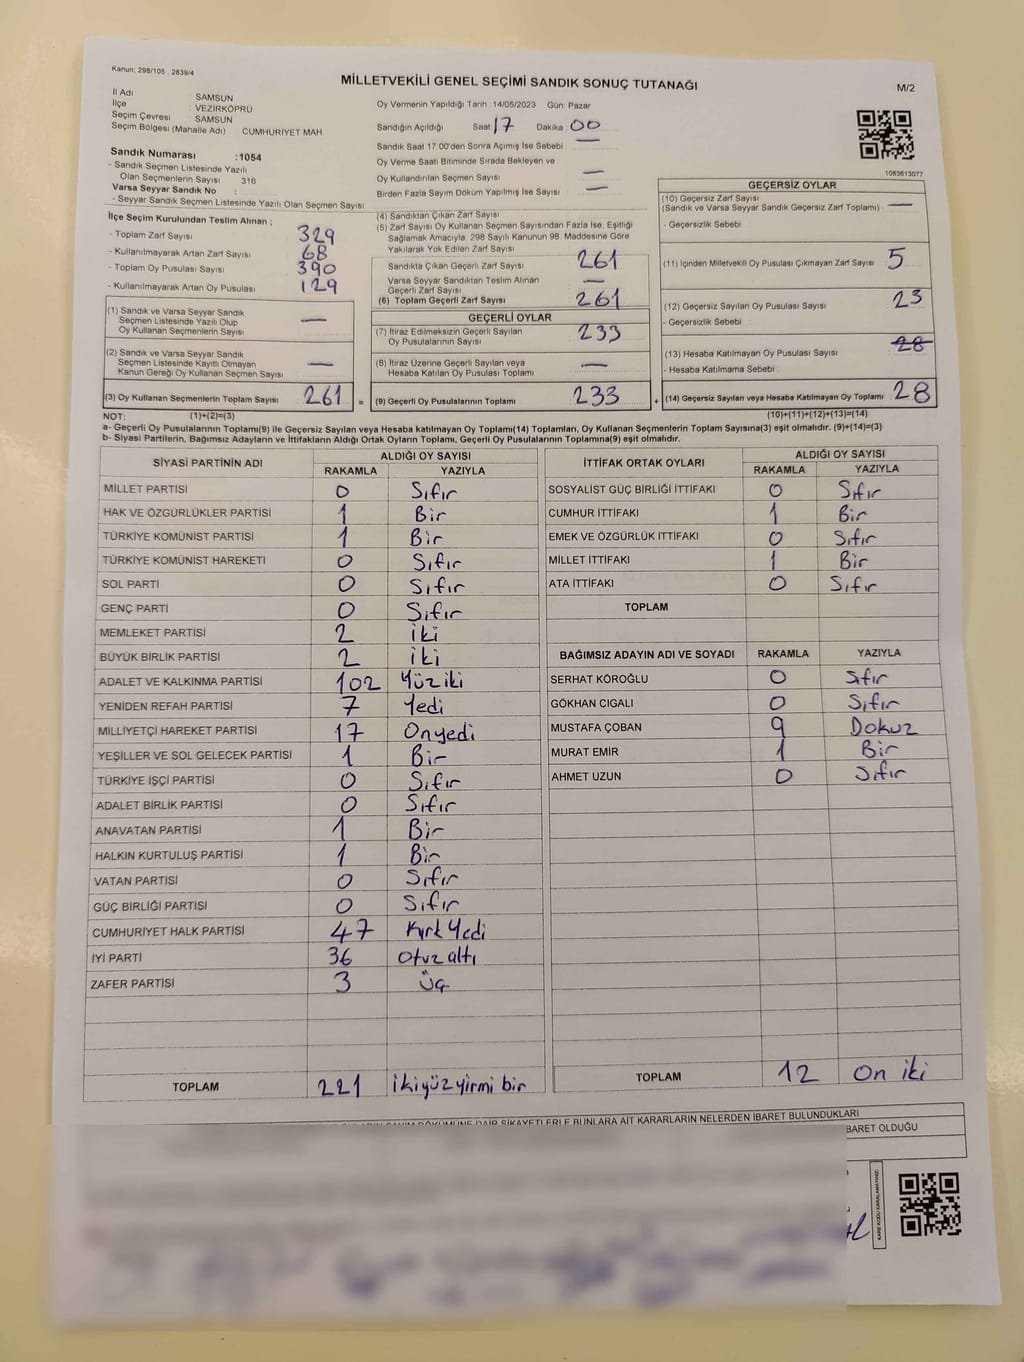 Kanun: 298/105 , 2839/4
MİLLETVEKİLİ GENEL SEÇİMİ SANDIK SONUÇ TUTANAĞI
M/2
İl Adı : SAMSUN
İlçe : VEZİRKÖPRÜ
Seçim Çevresi : SAMSUN
Seçim Bölgesi (Mahalle Adı) : CUMHURİYET MAH
Sandık Numarası : 1054
- Sandık Seçmen Listesinde Yazılı
Olan Seçmenlerin Sayısı : 316
Varsa Seyyar Sandık No :
- Seyyar Sandık Seçmen Listesinde Yazılı Olan Seçmen Sayısı
Oy Vermenin Yapıldığı Tarih :14/05/2023 Gün: Pazar
Sandığın Açıldığı Saat 17 Dakika 00
Sandık Saat 17:00'den Sonra Açımış İse Sebebi —
Oy Verme Saati Bitiminde Sırada Bekleyen ve
Oy Kullandırılan Seçmen Sayısı —
Birden Fazla Sayım Döküm Yapılmış İse Sayısı —
1083613077
İlçe Seçim Kurulundan Teslim Alınan ;
- Toplam Zarf Sayısı 329
- Kullanılmayarak Artan Zarf Sayısı 68
- Toplam Oy Pusulası Sayısı 390
- Kullanılmayarak Artan Oy Pusulası 129
(1) Sandık ve Varsa Seyyar Sandık
Seçmen Listesinde Yazılı Olup
Oy Kullanan Seçmenlerin Sayısı —
(2) Sandık ve Varsa Seyyar Sandık
Seçmen Listesinde Kayıtlı Olmayan
Kanun Gereği Oy Kullanan Seçmen Sayısı —
(3) Oy Kullanan Seçmenlerin Toplam Sayısı 261 =
(4) Sandıktan Çıkan Zarf Sayısı
(5) Zarf Sayısı Oy Kullanan Seçmen Sayısından Fazla İse, Eşitliği
Sağlamak Amacıyla, 298 Sayılı Kanunun 98. Maddesine Göre
Yakılarak Yok Edilen Zarf Sayısı
Sandıkta Çıkan Geçerli Zarf Sayısı 261
Varsa Seyyar Sandıktan Teslim Alınan
Geçerli Zarf Sayısı —
(6) Toplam Geçerli Zarf Sayısı 261
GEÇERLİ OYLAR
(7) İtiraz Edilmeksizin Geçerli Sayılan
Oy Pusulalarının Sayısı 233
(8) İtiraz Üzerine Geçerli Sayılan veya
Hesaba Katılan Oy Pusulası Toplamı —
(9) Geçerli Oy Pusulalarının Toplamı 233 +
GEÇERSİZ OYLAR
(10) Geçersiz Zarf Sayısı
(Sandık ve Varsa Seyyar Sandık Geçersiz Zarf Toplamı) —
- Geçersizlik Sebebi
(11) İçinden Milletvekili Oy Pusulası Çıkmayan Zarf Sayısı 5
(12) Geçersiz Sayılan Oy Pusulası Sayısı 23
- Geçersizlik Sebebi :
(13) Hesaba Katılmayan Oy Pusulası Sayısı 28
- Hesaba Katılmama Sebebi
(14) Geçersiz Sayılan veya Hesaba Katılmayan Oy Toplamı 28
NOT: (1)+(2)=(3) (10)+(11)+(12)+(13)=(14)
a- Geçerli Oy Pusulalarının Toplamı(9) ile Geçersiz Sayılan veya Hesaba katılmayan Oy Toplamı(14) Toplamları, Oy Kullanan Seçmenlerin Toplam Sayısına(3) eşit olmalıdır. (9)+(14)=(3)
b- Siyasi Partilerin, Bağımsız Adayların ve İttifakların Aldığı Ortak Oyların Toplamı, Geçerli Oy Pusulalarının Toplamına(9) eşit olmalıdır.
SİYASİ PARTİNİN ADI ALDIĞI OY SAYISI
RAKAMLA YAZIYLA
MİLLET PARTİSİ 0 Sıfır
HAK VE ÖZGÜRLÜKLER PARTİSİ 1 Bir
TÜRKİYE KOMÜNİST PARTİSİ 1 Bir
TÜRKİYE KOMÜNİST HAREKETİ 0 Sıfır
SOL PARTİ 0 Sıfır
GENÇ PARTİ 0 Sıfır
MEMLEKET PARTİSİ 2 iki
BÜYÜK BİRLİK PARTİSİ 2 iki
ADALET VE KALKINMA PARTİSİ 102 Yüz iki
YENİDEN REFAH PARTİSİ 7 Yedi
MİLLİYETÇİ HAREKET PARTİSİ 17 Onyedi
YEŞİLLER VE SOL GELECEK PARTİSİ 1 Bir
TÜRKİYE İŞÇİ PARTİSİ 0 Sıfır
ADALET BİRLİK PARTİSİ 0 Sıfır
ANAVATAN PARTİSİ 1 Bir
HALKIN KURTULUŞ PARTİSİ 1 Bir
VATAN PARTİSİ 0 Sıfır
GÜÇ BİRLİĞİ PARTİSİ 0 Sıfır
CUMHURİYET HALK PARTİSİ 47 Kırk Yedi
İYİ PARTİ 36 Otuz altı
ZAFER PARTİSİ 3 Üç
TOPLAM 221 ikiyüz yirmi bir
İTTİFAK ORTAK OYLARI ALDIĞI OY SAYISI
RAKAMLA YAZIYLA
SOSYALİST GÜÇ BİRLİĞİ İTTİFAKI 0 Sıfır
CUMHUR İTTİFAKI 1 Bir
EMEK VE ÖZGÜRLÜK İTTİFAKI 0 Sıfır
MİLLET İTTİFAKI 1 Bir
ATA İTTİFAKI 0 Sıfır
TOPLAM
BAĞIMSIZ ADAYIN ADI VE SOYADI RAKAMLA YAZIYLA
SERHAT KÖROĞLU 0 Sıfır
GÖKHAN CIGALI 0 Sıfır
MUSTAFA ÇOBAN 9 Dokuz
MURAT EMİR 1 Bir
AHMET UZUN 0 Sıfır
TOPLAM 12 On iki
DAİR ŞİKAYETLERLE BUNLARA AİT KARARLARIN NELERDEN İBARET BULUNDUKLARI
İBARET OLDUĞU